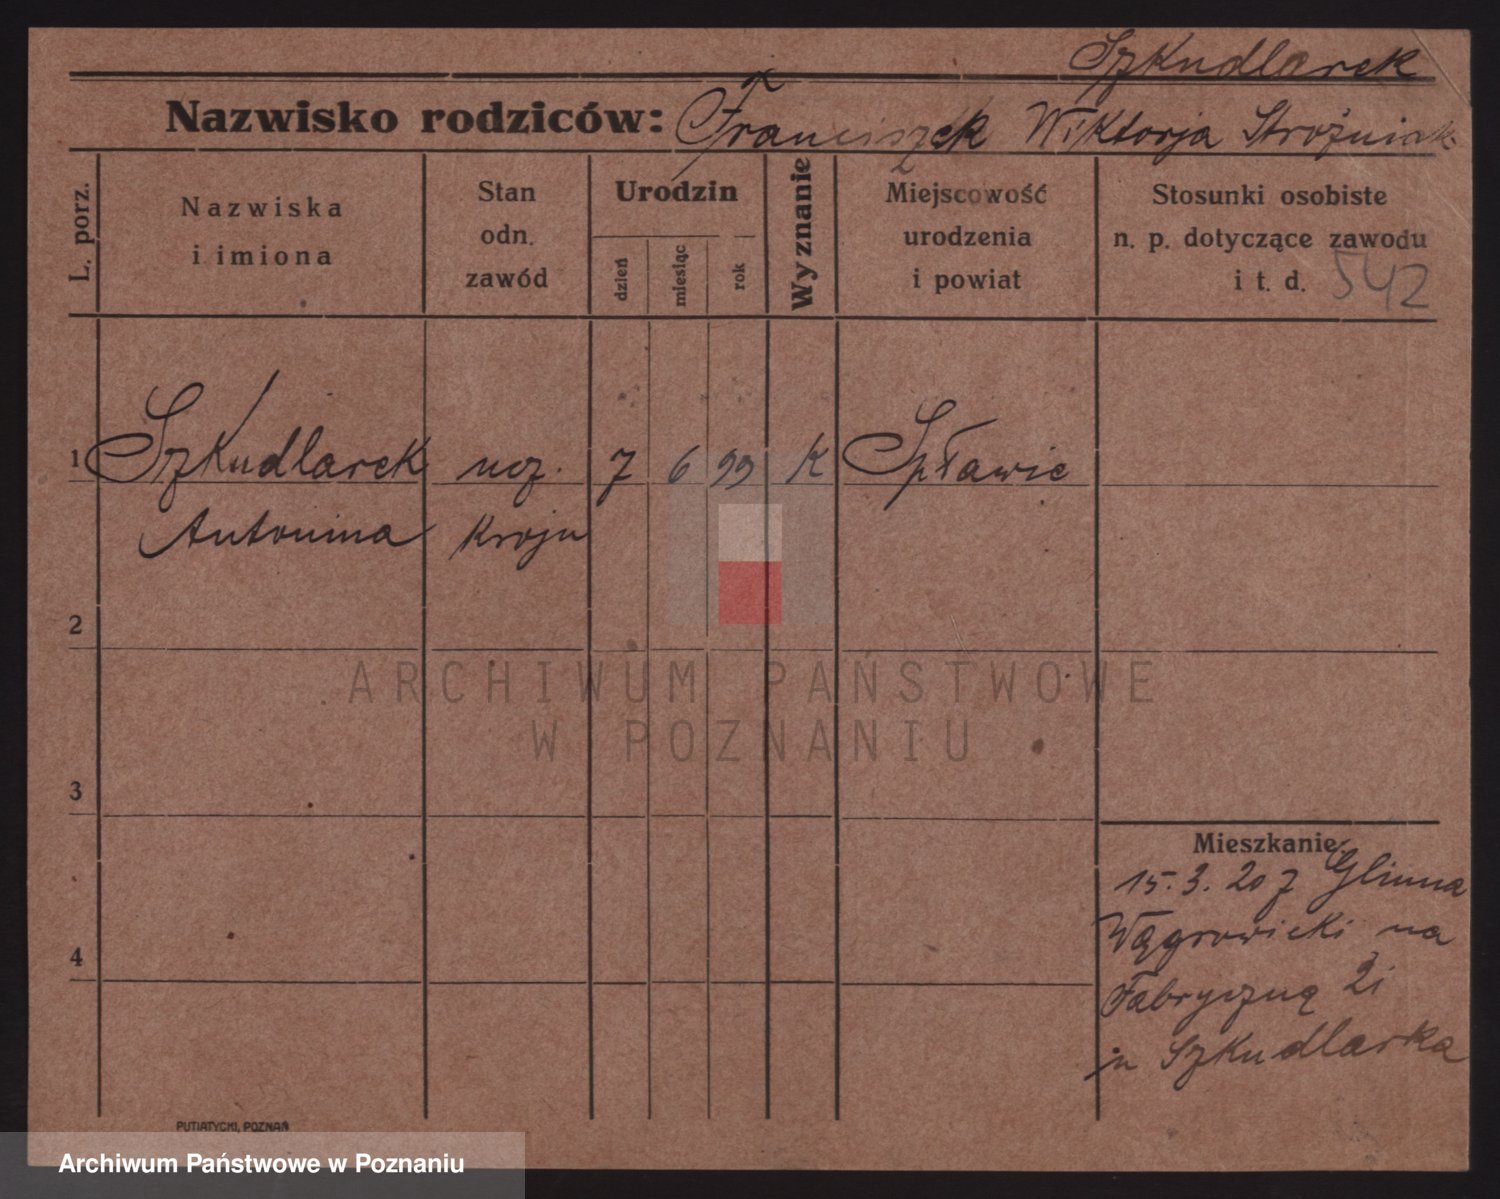 Szkudlarek
Nazwisko rodziców: Franciszek Wiktorja Stróżniak
L. porz.
Nazwiska
i imiona
Stan
odn.
zawód
Urodzin
dzień
miesiąc
rok
Wyznanie
Miejscowość
urodzenia
i powiat
Stosunki osobiste
n. p. dotyczące zawodu
i t. d. 542
1 Szkudlarek ucz. 7 6 99 K Spławie
Antonina kroju
2
ARCHIWUM PAŃSTWOWE
W POZNANIU
3
Mieszkanie:
15.3.20 z Glinna
Wągrowiecki na
4
Fabryczną
u Szkudlarka
PUTIATYCKI, POZNAŃ
Archiwum Państwowe w Poznaniu